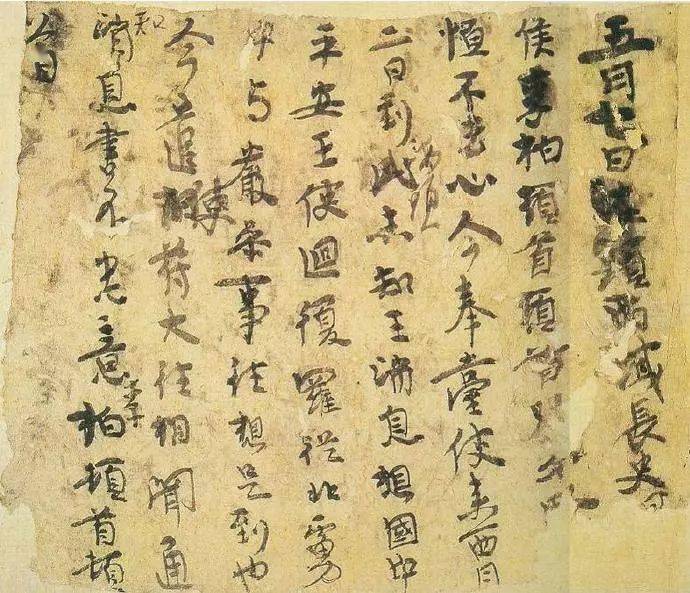 五月七日西域長史
侯李柏頓首頓首別
恒不去心今奉臺使來西月
二日到此海頭未知王消息想國中
平安王使迴復羅從北虜
中与嚴參事往想是到也
今遣使苻大往相聞通
知消息書不悉意李柏頓首頓